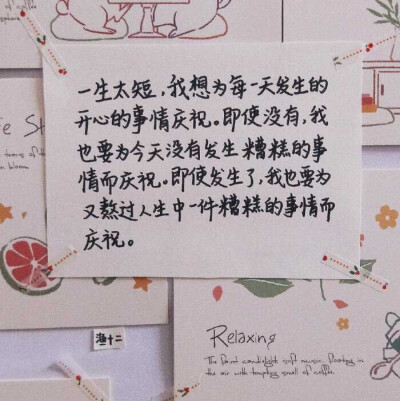 一生太短，我想为每一天发生的
开心的事情庆祝。即使没有，我
也要为今天没有发生糟糕的事
情而庆祝。即使发生了，我也要为
又熬过人生中一件糟糕的事情而
庆祝。
Relaxing
The faint candlelight soft music, floating in
the air with tempting smell of coffee.